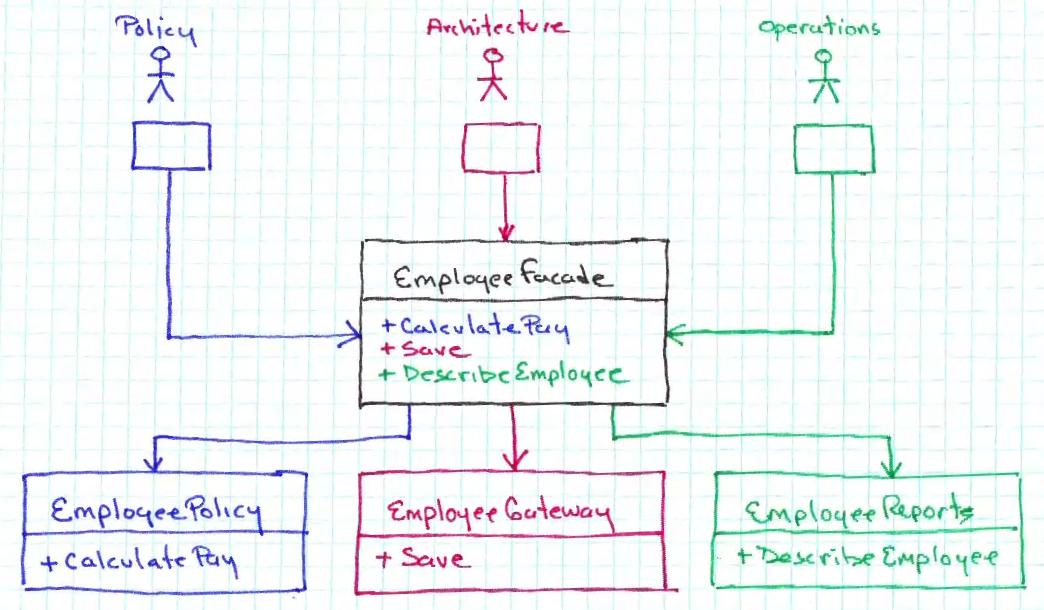 Policy
Architecture
Operations
EmployeeFacade
+CalculatePay
+Save
+DescribeEmployee
EmployeePolicy
+CalculatePay
EmployeeGateway
+Save
EmployeeReports
+DescribeEmployee